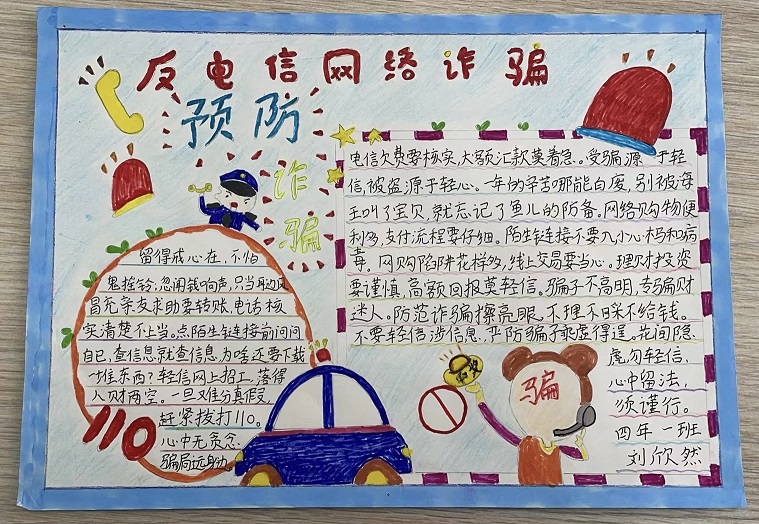 反电信网络诈骗
预防
诈
骗
留得戒心在,不怕
鬼按铃,忽闻钱响声,只当耳边风
冒充亲友求助要转账,电话核
实清楚不上当。点陌生链接前问问
自己,查信息就查信息,为啥还要下载
一堆东西?轻信网上招工,落得
人财两空。一旦难分真假,
赶紧拨打110。
心中无贪念
骗局远身边。
110
电信欠费要核实,大额汇款莫着急。受骗源于轻
信,被盗源于轻心。一年的辛苦哪能白废,别被海
王叫了宝贝,就忘记了鱼儿的防备。网络购物便
利多,支付流程要仔细。陌生链接不要入小心木马和病
毒。网购陷阱花样多,线上交易要当心。理财投资
要谨慎,高额回报莫轻信。骗子不高明,专骗财
迷人。防范诈骗擦亮眼,不理不睬不给钱。
不要轻信涉信息,严防骗子乘虚得逞,花间隐
虎勿轻信,
心中留法,
须谨行。
四年一班
刘欣然
骗